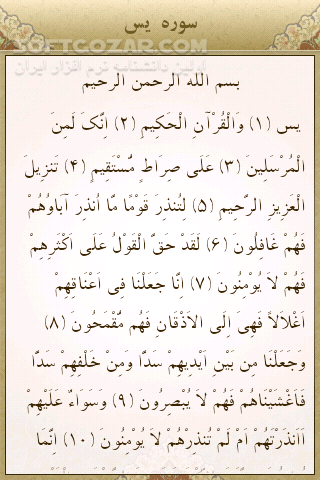 سوره یس
SOFTGOZAR.COM
اولین دانشنامه نرم افزار ایران
بسم الله الرحمن الرحیم
یس (۱) وَالْقُرْآنِ الْحَكِیمِ (۲) اِنَّكَ لَمِنَ
الْمُرْسَلِینَ (۳) عَلَى صِرَاطٍ مُّسْتَقِیمٍ (۴) تَنزِیلَ
الْعَزِیزِ الرَّحِیمِ (۵) لِتُنذِرَ قَوْمًا مَّا اُنذِرَ آبَاوُهُمْ
فَهُمْ غَافِلُونَ (۶) لَقَدْ حَقَّ الْقَوْلُ عَلَى اَكْثَرِهِمْ
فَهُمْ لَا یُوْمِنُونَ (۷) اِنَّا جَعَلْنَا فِی اَعْنَاقِهِمْ
اَغْلَالاً فَهِیَ اِلَى الاَذْقَانِ فَهُم مُّقْمَحُونَ (۸)
وَجَعَلْنَا مِن بَیْنِ اَیْدِیهِمْ سَدًّا وَمِنْ خَلْفِهِمْ سَدًّا
فَاَغْشَیْنَاهُمْ فَهُمْ لَا یُبْصِرُونَ (۹) وَسَوَاء عَلَیْهِمْ
اَاَنذَرْتَهُمْ اَمْ لَمْ تُنذِرْهُمْ لَا یُوْمِنُونَ (۱۰) اِنَّمَا